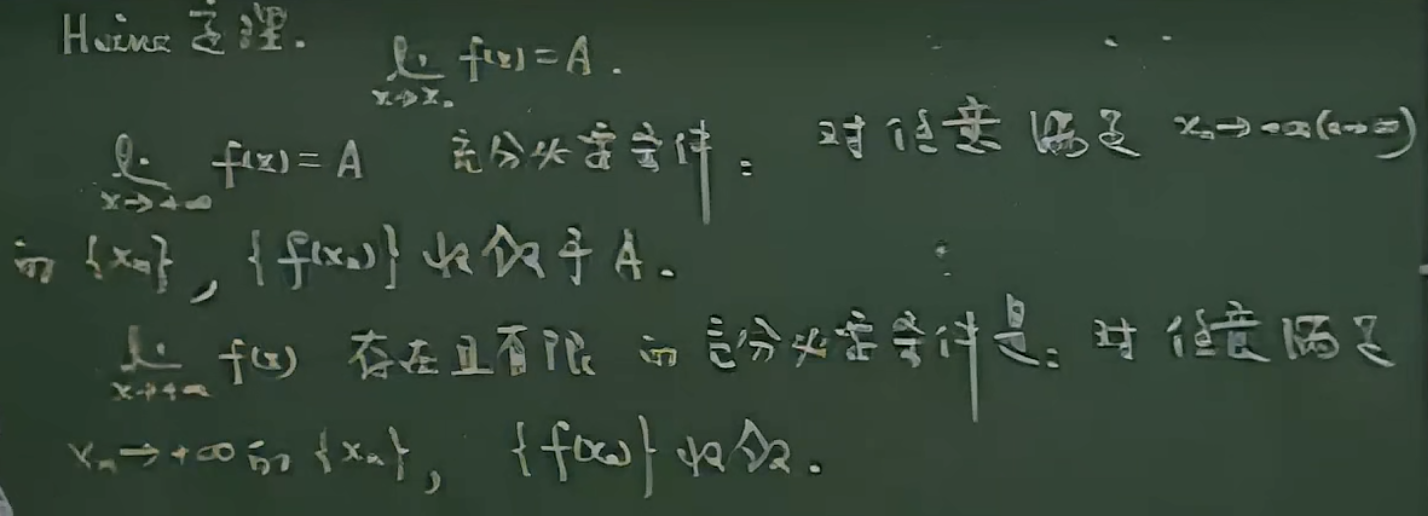 Heine 定理.
lim_{x→x₀} f(x) = A.
lim_{x→+∞} f(x) = A 充分必要条件: 对任意满足 xₙ→+∞(n→∞)
的 {xₙ}, {f(xₙ)} 收敛于 A.
lim_{x→+∞} f(x) 存在且有限 的 充分必要条件是: 对任意满足
xₙ→+∞ 的 {xₙ}, {f(xₙ)} 收敛.